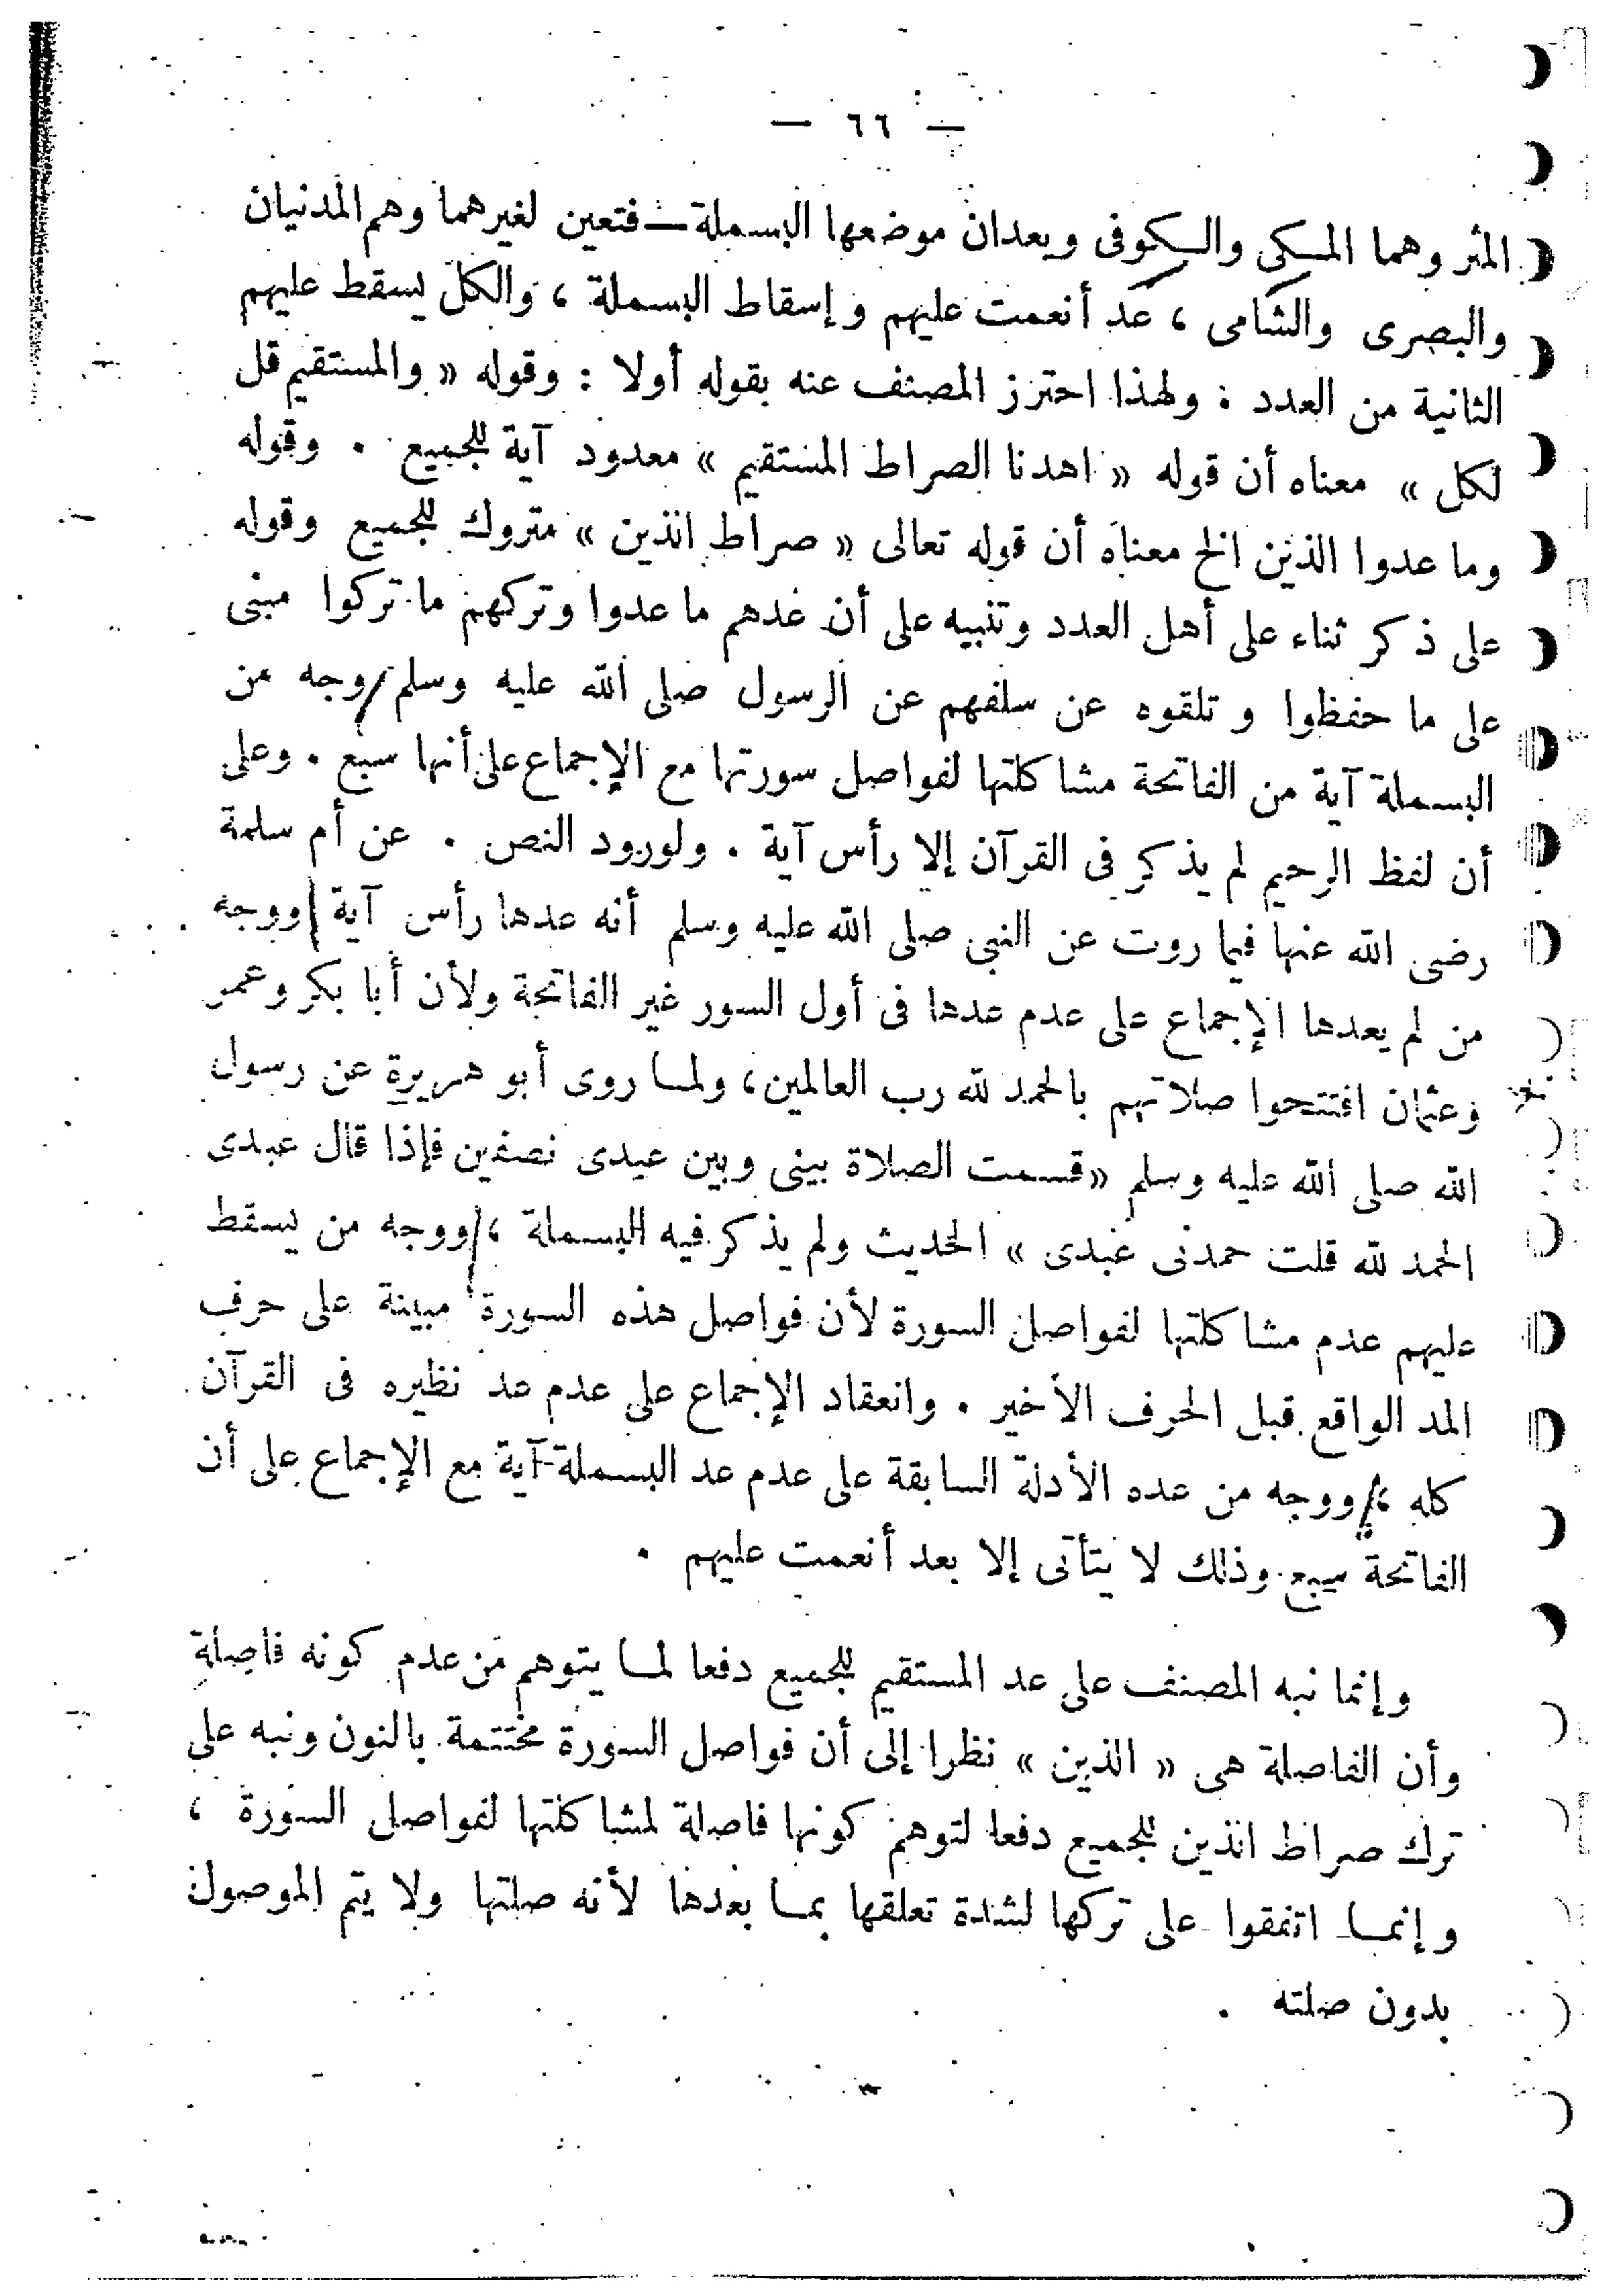 — ٦٦ —
المثر وهما المكى والكوفى ويعدان موضعها البسملة — فتعين لغيرهما وهم المدنيان
والبصرى والشامى ، عد أنعمت عليهم وإسقاط البسملة ، والكل يسقط عليهم
الثانية من العدد : ولهذا احترز المصنف عنه بقوله أولا : وقوله « والمستقيم قل
لكل » معناه أن قوله « اهدنا الصراط المستقيم » معدود آية للجميع . وقوله
وما عدوا الذين الخ معناه أن قوله تعالى « صراط الذين » متروك للجميع وقوله
على ذكر ثناء على أهل العدد وتنبيه على أن عدهم ما عدوا وتركهم ما تركوا مبنى
على ما حفظوا و تلقوه عن سلفهم عن الرسول صلى الله عليه وسلم / وجه من
البسملة آية من الفاتحة مشاكلتها لفواصل سورتها مع الإجماع على أنها سبع . وعلى
أن لفظ الرحيم لم يذكر فى القرآن إلا رأس آية . ولورود النص . عن أم سلمة
رضى الله عنها فيما روت عن النبى صلى الله عليه وسلم أنه عدها رأس آية / ووجه
من لم يعدها الإجماع على عدم عدها فى أول السور غير الفاتحة ولأن أبا بكر وعمر
وعثمان افتتحوا صلاتهم بالحمد لله رب العالمين ، ولما روى أبو هريرة عن رسول
الله صلى الله عليه وسلم « قسمت الصلاة بينى وبين عبدى نصفين فإذا قال عبدى
الحمد لله قلت حمدنى عبدى » الحديث ولم يذكر فيه البسملة ، / ووجه من يسقط
عليهم عدم مشاكلتها لفواصل السورة لأن فواصل هذه السورة مبينة على حرف
المد الواقع قبل الحرف الأخير . وانعقاد الإجماع على عدم عد نظيره فى القرآن
كله ، / ووجه من عده الأدلة السابقة على عدم عد البسملة آية مع الإجماع على أن
الفاتحة سبع وذلك لا يتأتى إلا بعد أنعمت عليهم .
وإنما نبه المصنف على عد المستقيم للجميع دفعا لما يتوهم من عدم كونه فاصلة
وأن الفاصلة هى « الذين » نظرا إلى أن فواصل السورة مختتمة بالنون ونبه على
ترك صراط الذين للجميع دفعا لتوهم كونها فاصلة لمشاكلتها لفواصل السورة ،
وإنما اتفقوا على تركها لشدة تعلقها بما بعدها لأنه صلتها ولا يتم الموصول
بدون صلته .